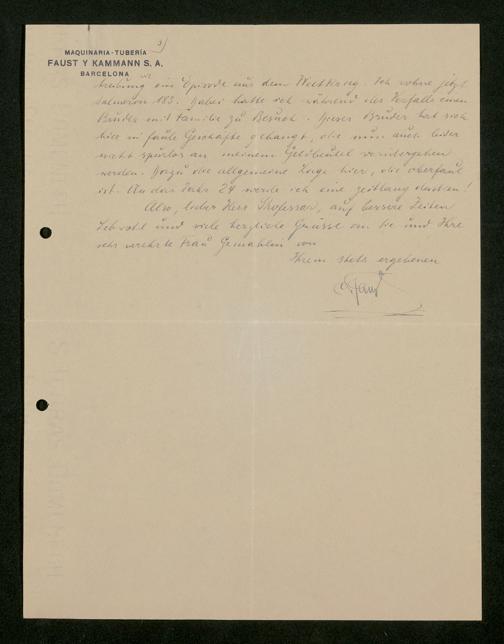 3)
MAQUINARIA-TUBERÍA
FAUST Y KAMMANN S. A.
BARCELONA
treibung ein Episode aus dem Weltkrieg. Ich wohne jetzt
Salmerón 183. Dabei hatte ich während des Verfalls einen
Bruder mit Familie zu Besuch. Dieser Bruder hat sich
hier in faule Geschäfte gehängt, die nun auch leider
nicht spurlos an meinem Geldbeutel vorübergehen
werden. Dazu die allgemeine Lage hier, die oberfaul
ist. An das Jahr 24 werde ich eine zeitlang denken!
Also, lieber Herr Professor, auf bessere Zeiten
Leb wohl und viele herzliche Grüsse an Sie und Ihre
sehr verehrte Frau Gemahlin von
Ihrem stets ergebenen
Faust